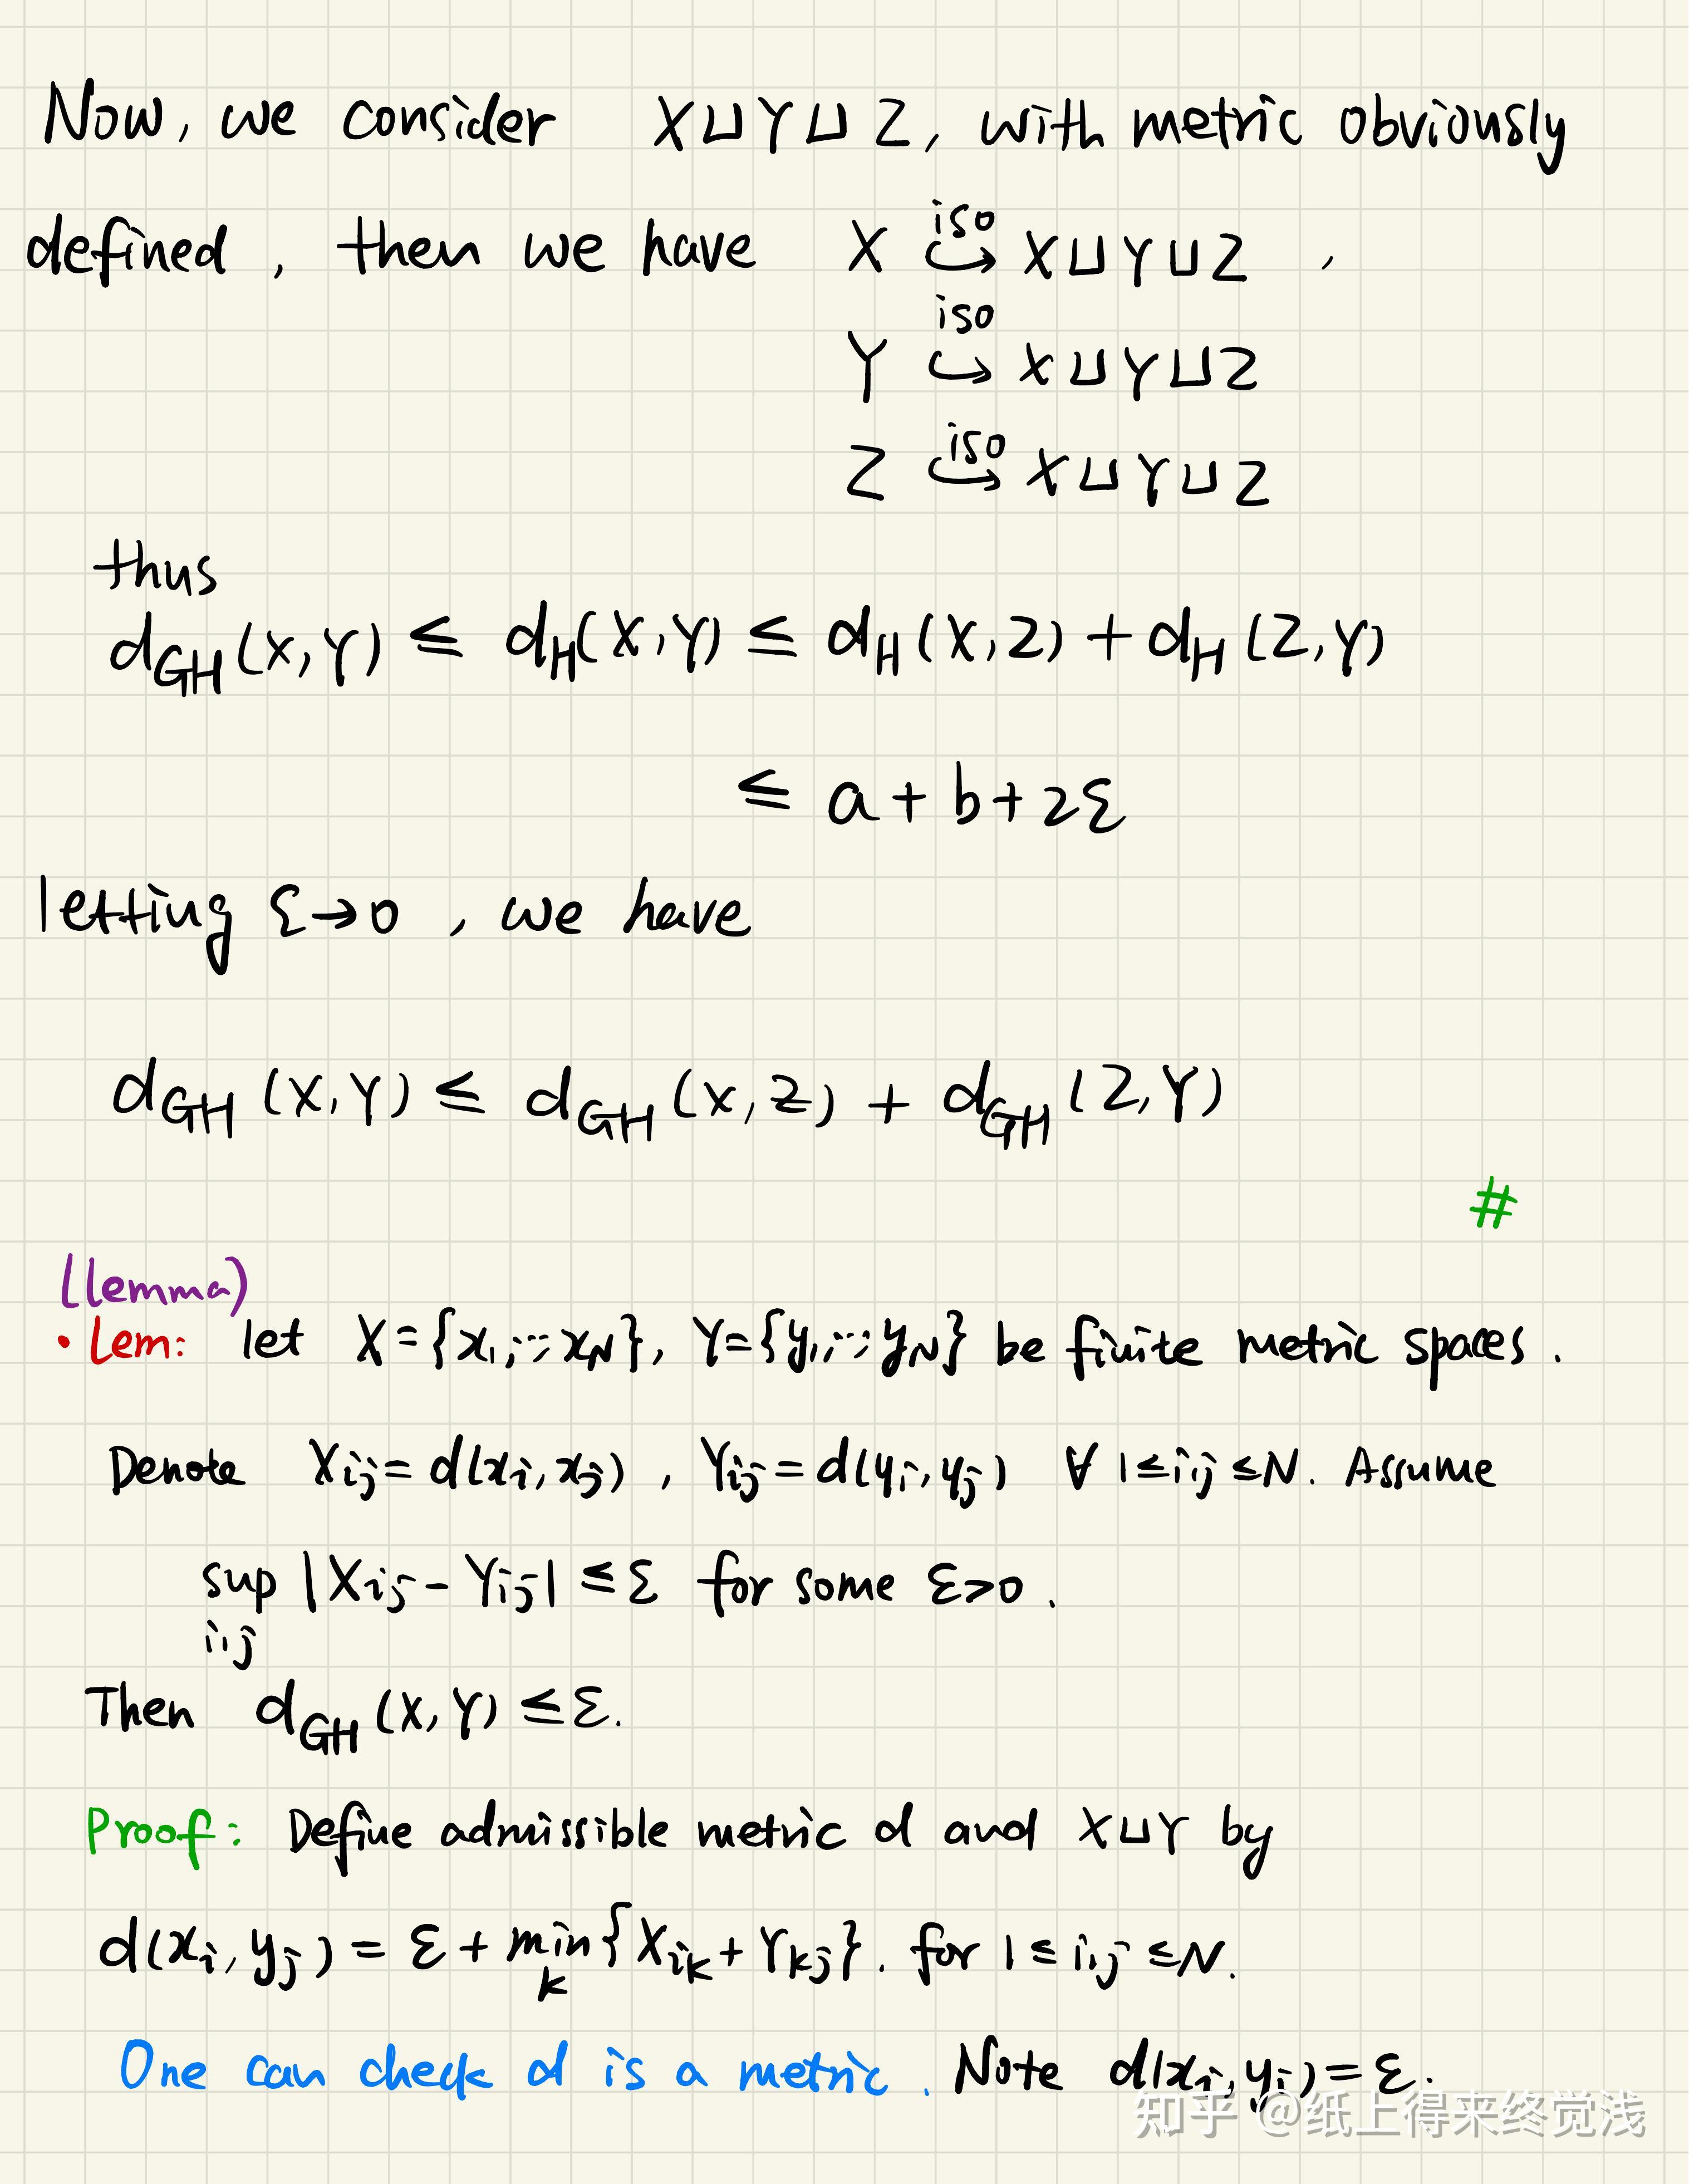 Now, we consider X⊔Y⊔Z, with metric obviously
defined, then we have X ↪^{iso} X⊔Y⊔Z ,
Y ↪^{iso} X⊔Y⊔Z
Z ↪^{iso} X⊔Y⊔Z
thus
d_{GH}(X,Y) ≤ d_H(X,Y) ≤ d_H(X,Z) + d_H(Z,Y)
≤ a + b + 2ε
letting ε→0 , we have
d_{GH}(X,Y) ≤ d_{GH}(X,Z) + d_{GH}(Z,Y)
#
(lemma)
• Lem: let X={x_1,…,x_N}, Y={y_1,…,y_N} be finite metric spaces .
Denote X_{ij}=d(x_i,x_j) , Y_{ij}=d(y_i,y_j) ∀ 1≤i,j≤N. Assume
sup_{i,j} |X_{ij} - Y_{ij}| ≤ε for some ε>0 .
Then d_{GH}(X,Y) ≤ε.
Proof: Define admissible metric d and X⊔Y by
d(x_i,y_j) = ε + min_k{X_{ik}+Y_{kj}}. for 1≤i,j≤N.
One can check d is a metric. Note d(x_i,y_i)=ε.
知乎 @纸上得来终觉浅